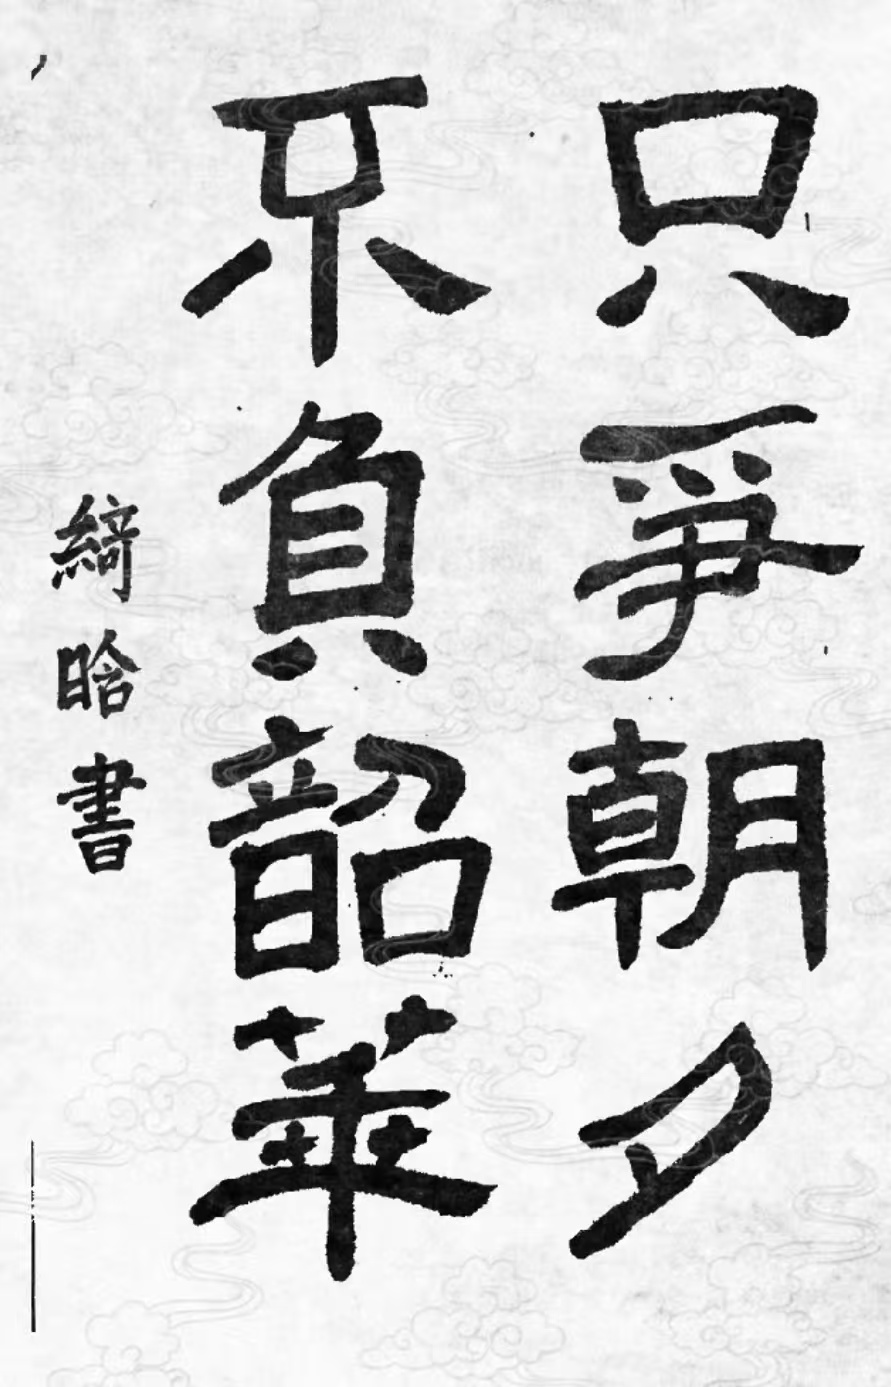 只爭朝夕
不負韶華
綺晗書